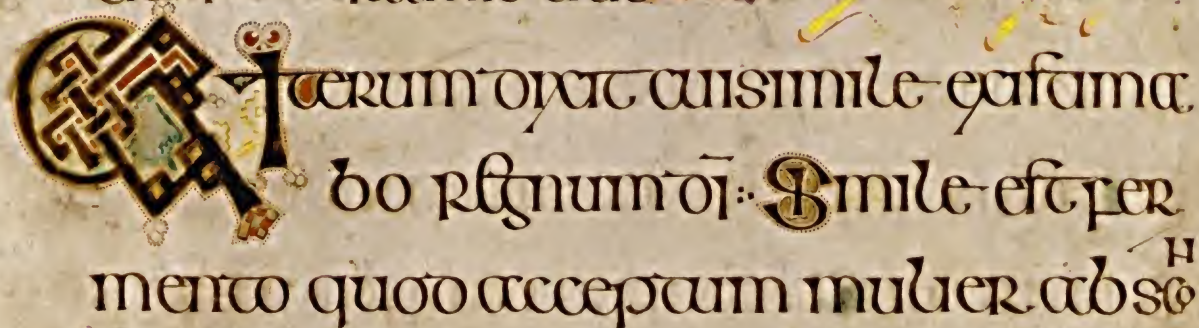 Et Iterum dixit cui simile existima
bo regnum dī :· Simile est fer
mento quod acceptum mulier abscon